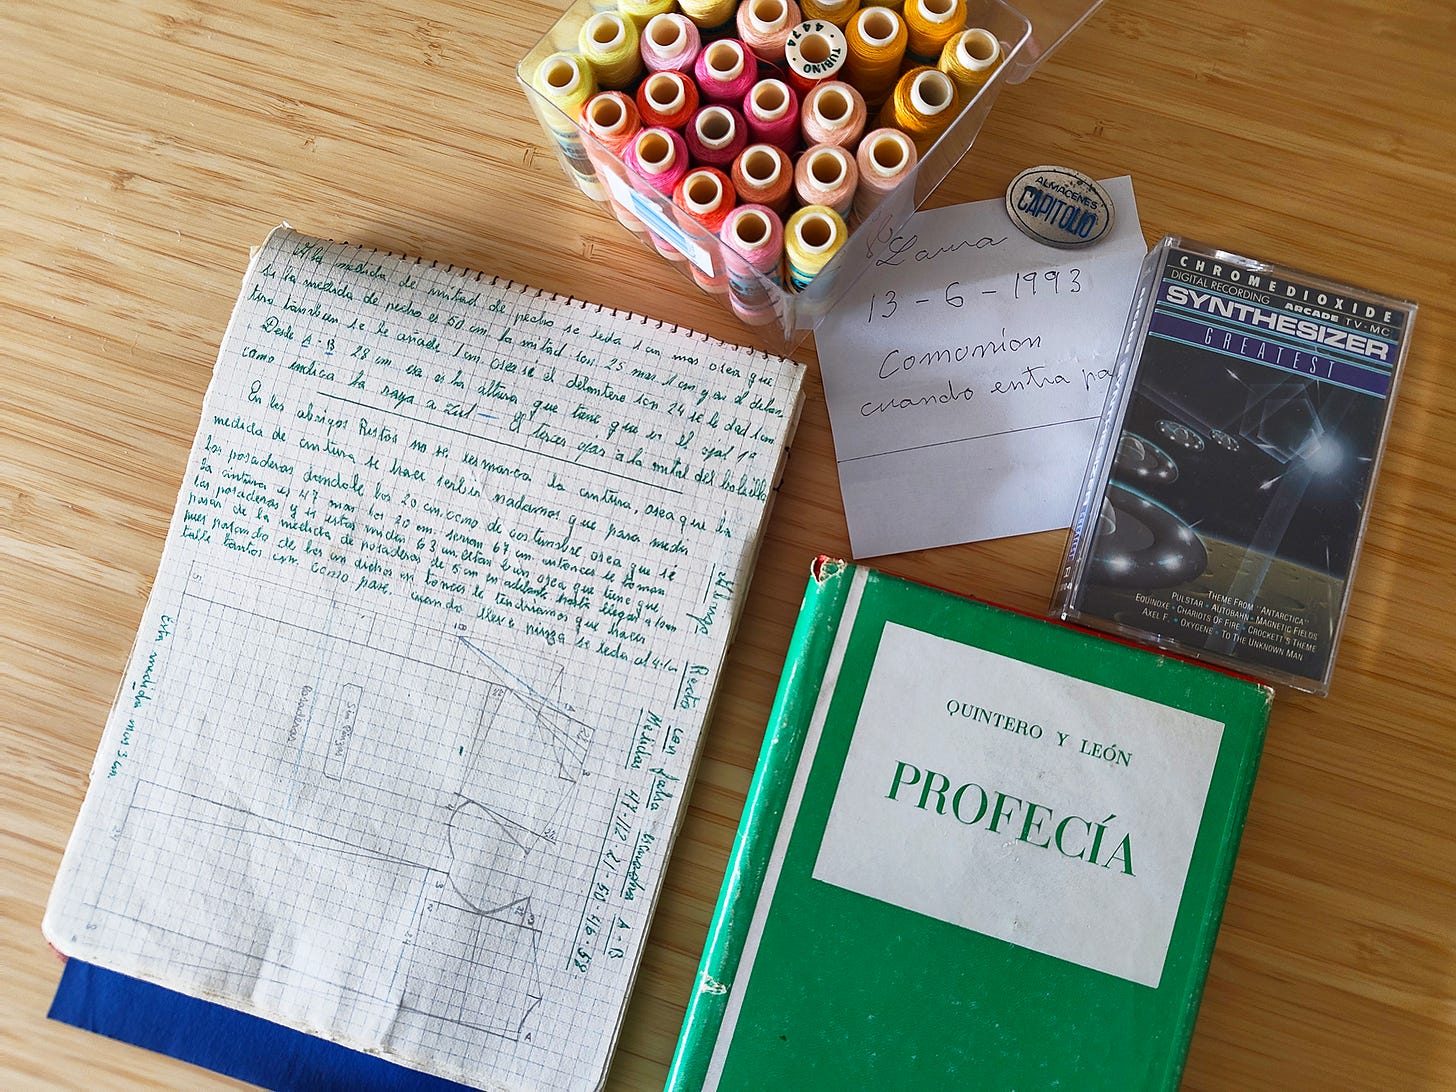 4474
TURINO
ALMACENES
CAPITOLIO
Laura
13 - 6 - 1993
Comonión
cuando entra pa
CHROMEDIOXIDE
DIGITAL RECORDING ARCADE TV-MC
SYNTHESIZER
GREATEST
THEME FROM "ANTARCTICA"
PULSTAR • AUTOBAHN • MAGNETIC FIELDS
EQUINOXE • CHARIOTS OF FIRE • CROCKETT'S THEME
AXEL F. • OXYGENE • TO THE UNKNOWN MAN
QUINTERO Y LEÓN
PROFECÍA
la medida de mitad de pecho se le da 1 cm mas osea que
si la medida de pecho es 50 cm la mitad son 25 mas 1 cm y en el delan
tero tambien se le añade 1 cm osea si el delantero son 24 se le da 1 cm
Desde A - B 28 cm esa es la altura que tiene que ir el ojal 1º
como indica la raya azul — y tercer ojar a la mitad del bolsillo
En los abrigos Rectos no se les marca la cintura, osea que la
medida de cintura se hace sería nadamas que para medir
las posaderas dandole los 20 cm como de costumbre osea que se
la cintura es 47 mas los 20 cm serian 67 cm entonces se toman
las posaderas y si estas miden 63 cm
pasar de la medida de posaderas de 5 cm en adelante hasta llegar a
pues pasando de los cm dichos entonces le tendriamos que hacer
talle tantos cm como pase, cuando lleve pinza se le da al
Manga
Recto con falsa escuadra A - B
Medidas 47 - 112 - 21 - 50 - 46 - 58 -
Esta medida mas 3 cm.
Sin Pinza
Posaderas